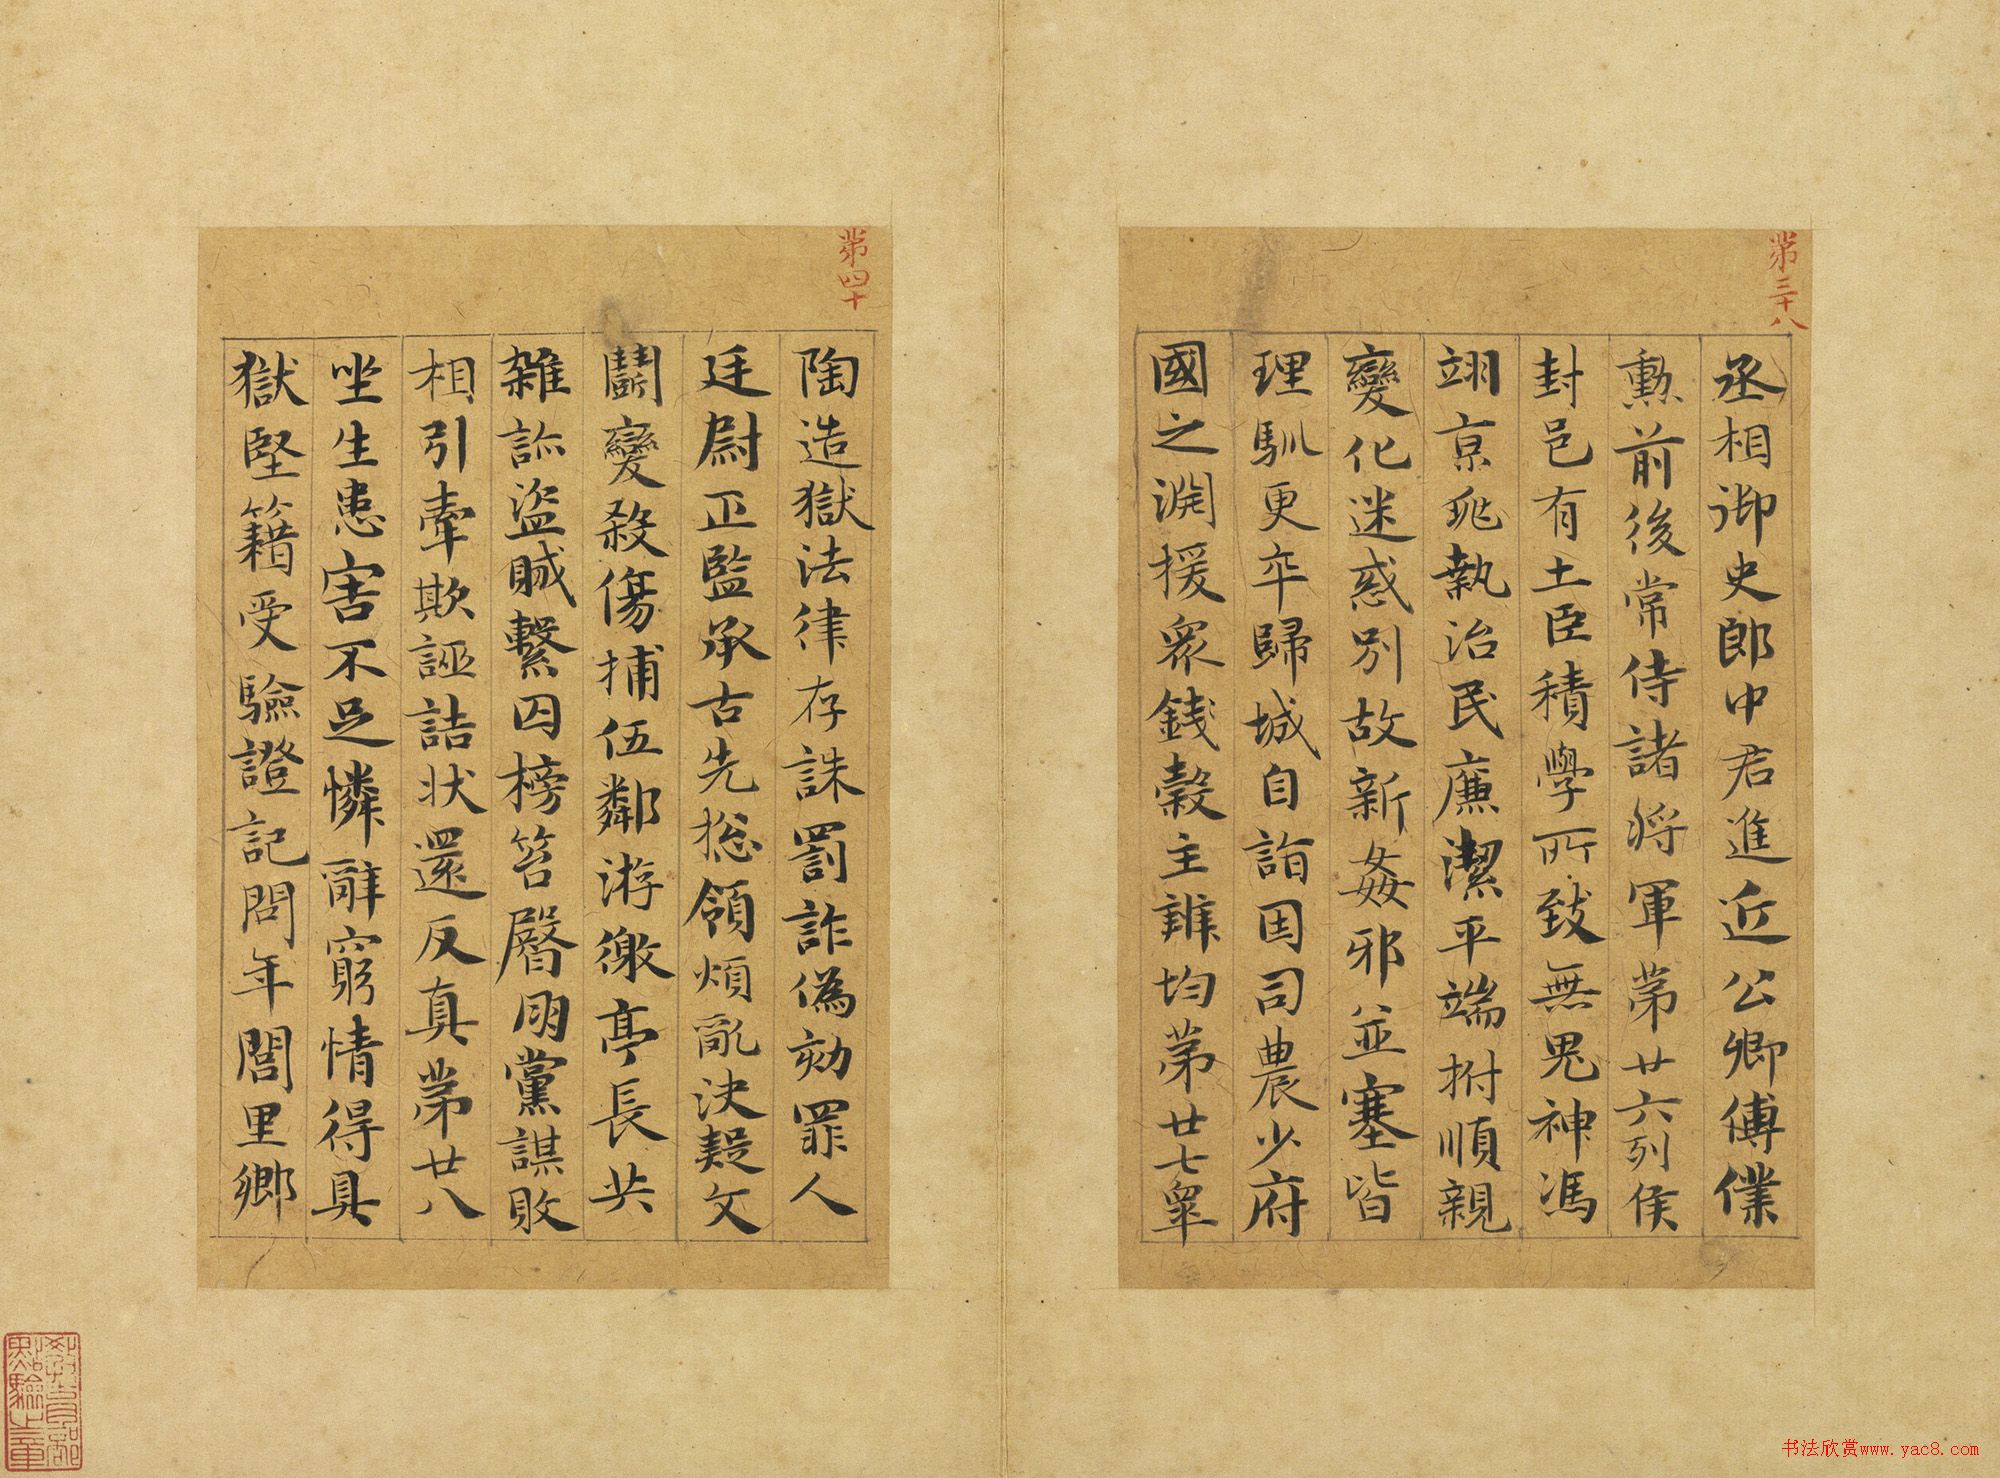 第三十八
丞相御史郎中君進近公卿傅僕
勳前後常侍諸將軍第廿六列侯
封邑有土臣積學所致無鬼神馮
翊京兆執治民廉潔平端拊順親
變化迷惑別故新姦邪並塞皆
理馴更卒歸城自詣因司農少府
國之淵援眾錢穀主辨均第廿七皐
第四十
陶造獄法律存誅罰詐偽劾罪人
廷尉正監承古先揔領煩亂決疑文
鬭變殺傷捕伍鄰游徼亭長共
雜訟盜賊繫囚榜笞臀朋黨謀敗
相引牽欺誣詰狀還反真第廿八
坐生患害不足憐辭窮情得具
獄堅籍受驗證記問年閭里鄉
教育部
點驗之章
书法欣赏www.yac8.com